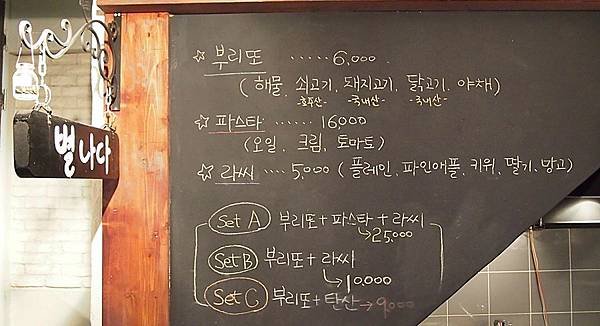 별나다
☆ 부리또 ······ 6,000
(해물, 쇠고기, 돼지고기, 닭고기, 야채)
호주산- -국내산- -국내산-
☆ 파스타 ······ 16,000
(오일, 크림, 토마토)
☆ 라씨 ···· 5,000 (플레인, 파인애플, 키위, 딸기, 망고)
Set A 부리또 + 파스타 + 라씨
→25,000
Set B 부리또 + 라씨
→10,000
Set C 부리또 + 탄산 → 9,000